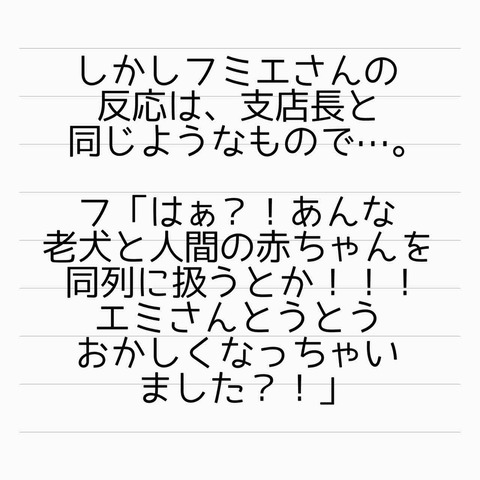 しかしフミエさんの
反応は、支店長と
同じようなもので…。
フ「はぁ？！あんな
老犬と人間の赤ちゃんを
同列に扱うとか！！！
エミさんとうとう
おかしくなっちゃい
ました？！」